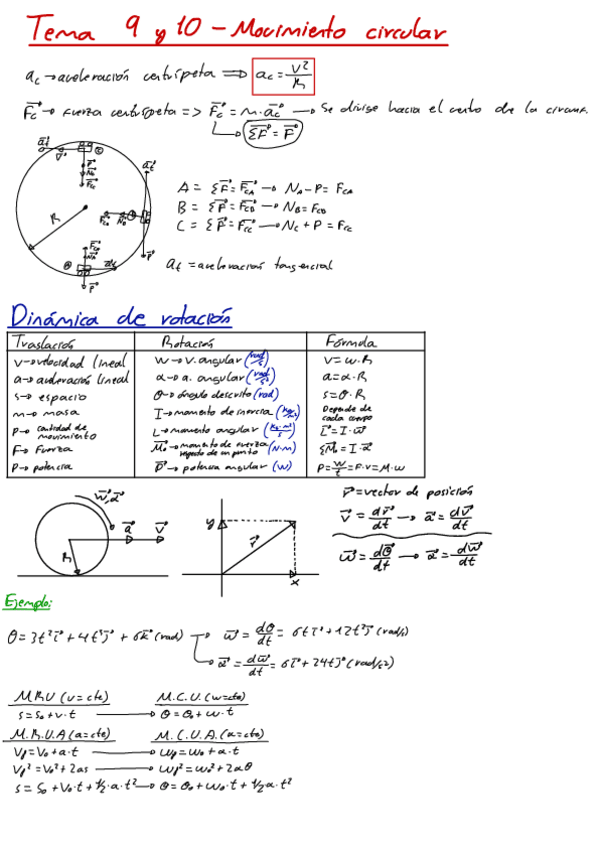 Tema 9 y 10 - Movimiento circular
ac → aceleración centrípeta => ac = v²/R
Fc → Fuerza centrípeta => Fc = m·ac → Se dirige hacia el centro de la circunf.
ΣF = F
at
v
P
Fc
R
A = ΣF = FcA → NA - P = FcA
B = ΣF = FcB → NB = FcB
C = ΣF = FcC → NC + P = FcC
at = aceleración tangencial
Dinámica de rotación
Traslación Rotación Fórmula
v → velocidad lineal w → v. angular (rad/s) v = w·R
a → aceleración lineal α → a. angular (rad/s²) a = α·R
s → espacio θ → ángulo descrito (rad) s = θ·R
m → masa I → momento de inercia Depende de cada cuerpo
P → cantidad de movimiento L → momento angular L = I·w
F → Fuerza Mo → momento de fuerza respecto de un punto (N·m) ΣMo = I·α
P → potencia P → potencia angular (W) P = W/t = F·v = M·w
w, α
a v
R
y
r
x
r = vector de posición
v = dr/dt → a = dv/dt
w = dθ/dt → α = dw/dt
Ejemplo:
θ = 3t² i + 4t³ j + 6k (rad) → w = dθ/dt = 6t i + 12t² j (rad/s)
α = dw/dt = 6i + 24t j (rad/s²)
M.R.U (v = cte) M.C.U. (w = cte)
s = so + v·t → θ = θo + w·t
M.R.U.A (a = cte) M.C.U.A. (α = cte)
Vf = Vo + a·t → wf = wo + α·t
Vf² = Vo² + 2as → wf² = wo² + 2αθ
s = so + Vo·t + 1/2·a·t² → θ = θo + wo·t + 1/2α·t²